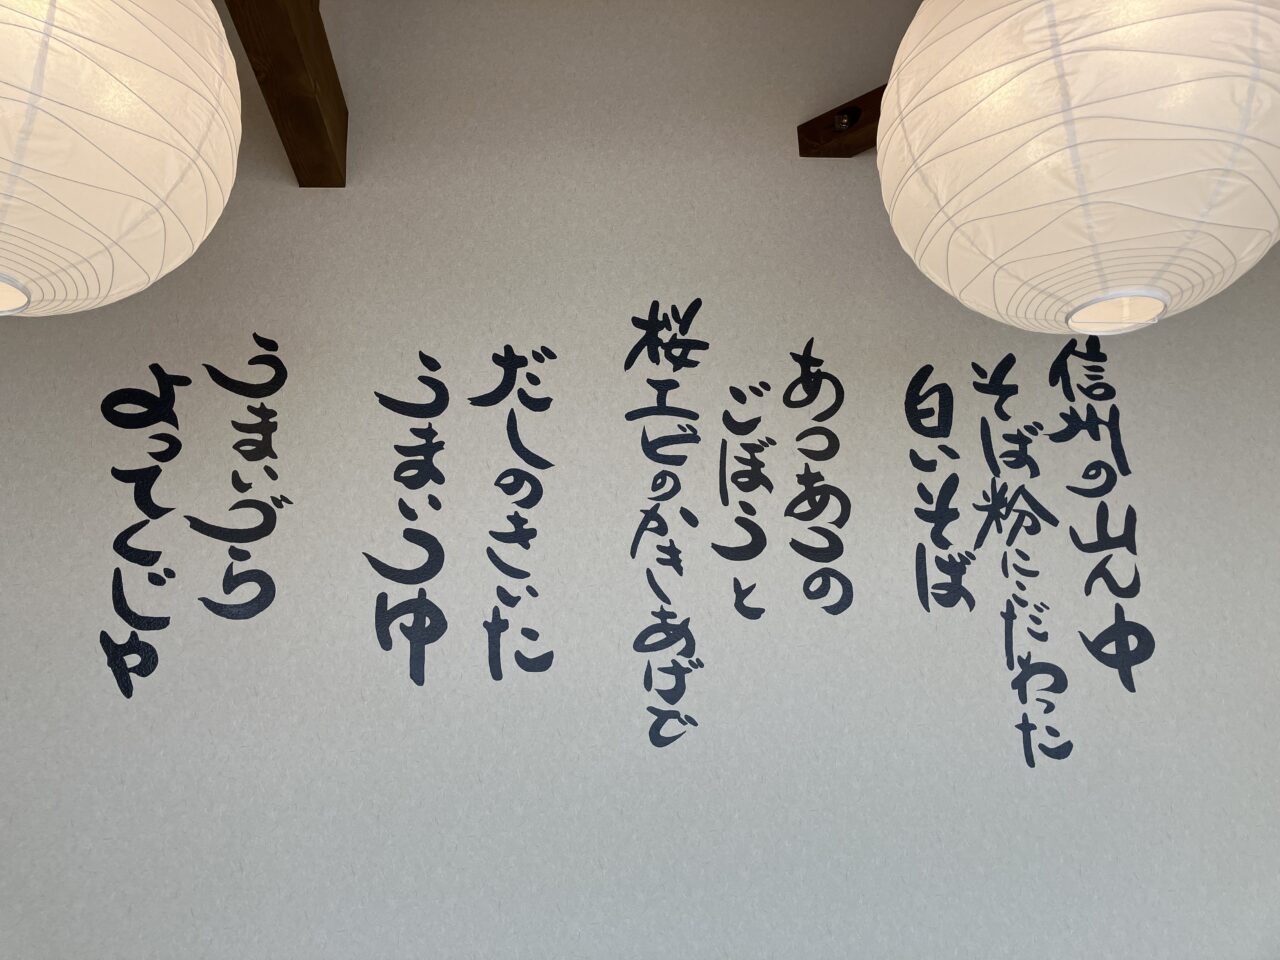 信州の山ん中
そば粉にこだわった
白いそば
あつあつの
ごぼうと
桜エビのかきあげで
だしのきいた
うまいつゆ
うまいづら
よってくじゃ